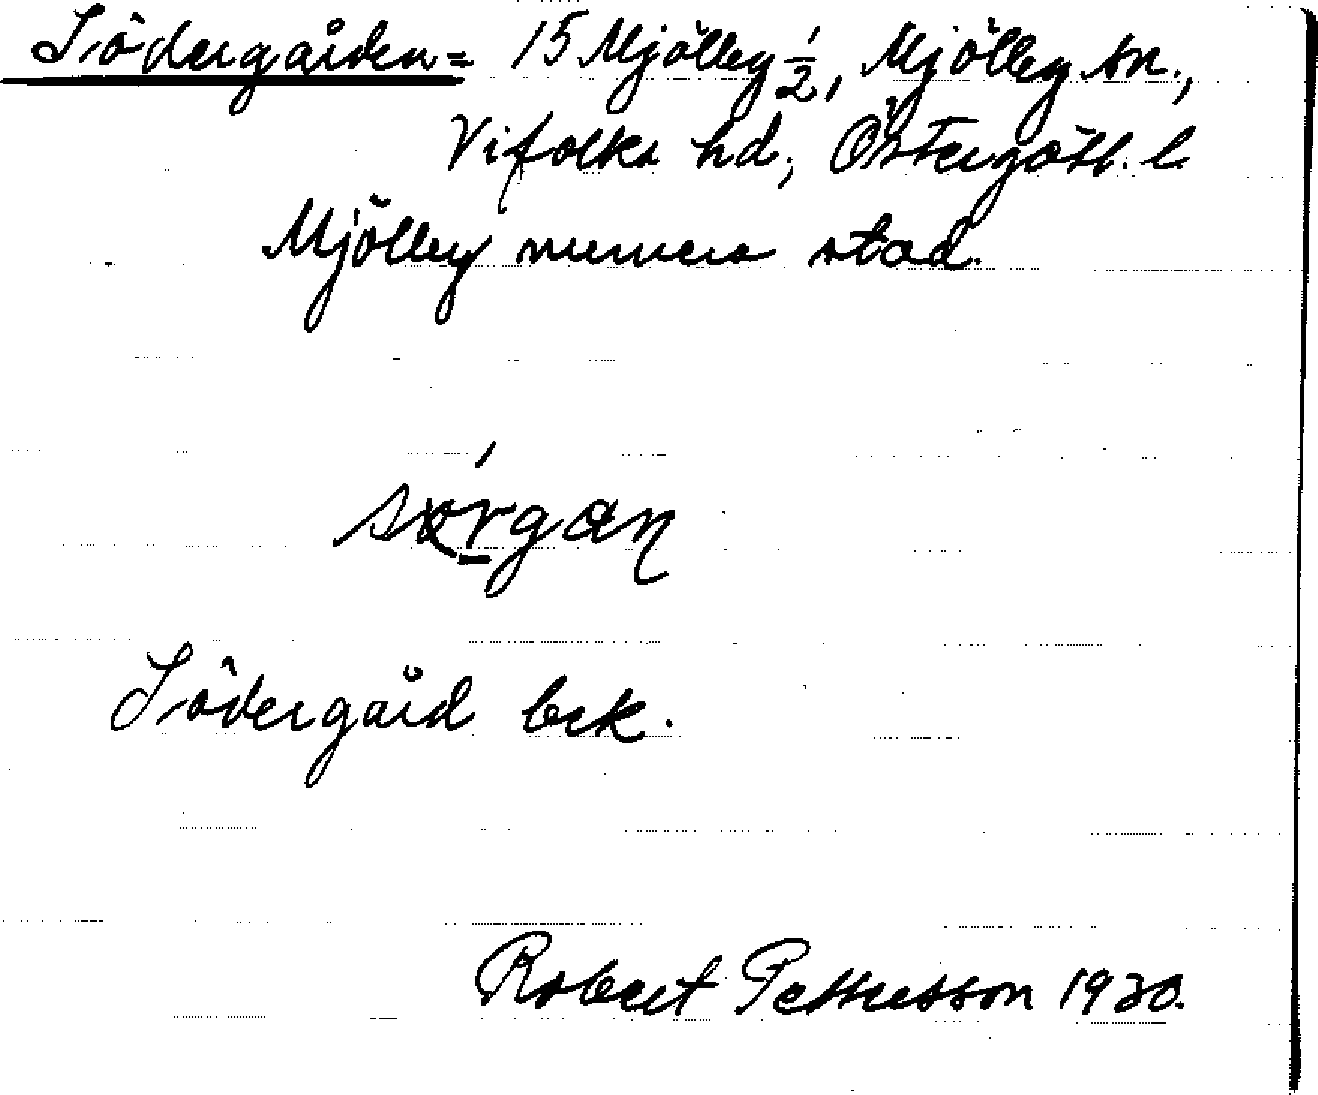 Södergården = 15 Mjölby 1/2, Mjölby sn.,
Vifolka hd, Östergötl. l.
Mjölby numera stad.
Södergård bek.
Robert Pettersson 1920.